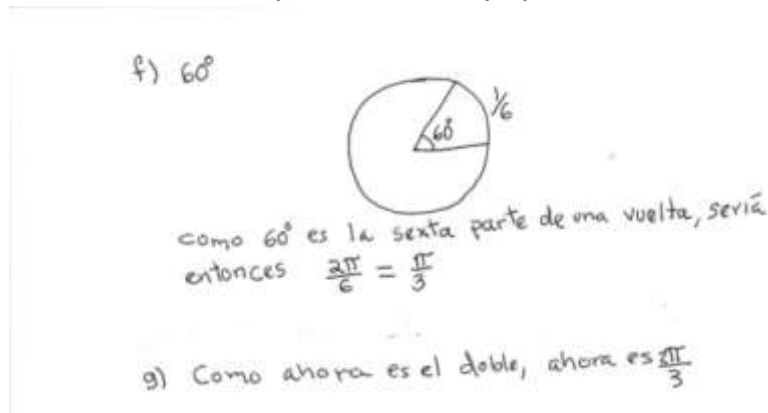 f) 60°
1/6
60°
como 60° es la sexta parte de una vuelta, sería
entonces 2π/6 = π/3
g) Como ahora es el doble, ahora es 2π/3